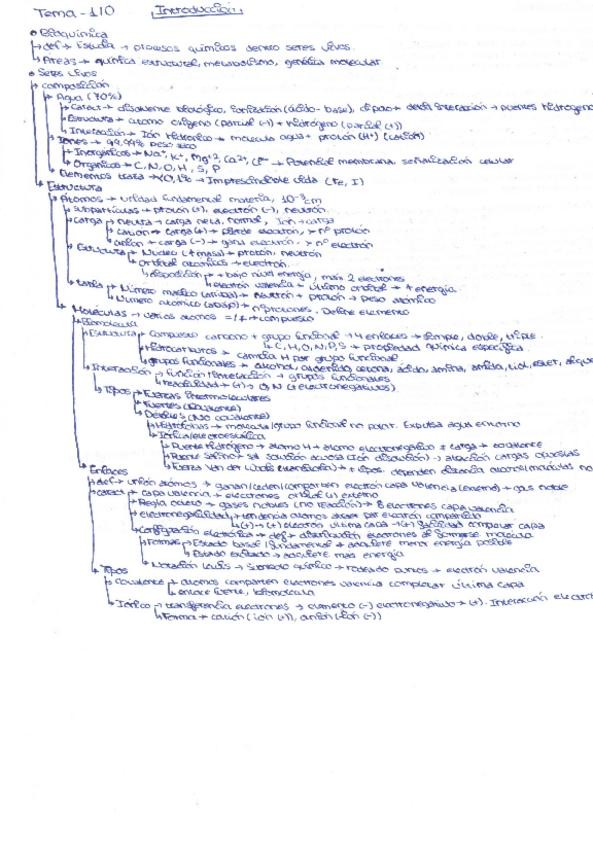 Tema - 1/0 Introducción
Bioquímica
def → Estudia → procesos químicos dentro seres vivos.
Áreas → química estructural, metabolismo, genética molecular
Seres vivos
composición
Agua (70%)
Caract → disolvente biológico, ionización (ácido-base), dipolo → débil interacción → puentes hidrógeno
Estructura → átomo oxígeno (parcial (-)) + hidrógeno (parcial (+))
Interacción → Ión hidronio → molécula agua + protón (H+) (catión)
Iones → 99,99% peso seco
Inorgánicos → Na+, K+, Mg+2, Ca2+, Cl- → Potencial membrana, señalización celular
Orgánicos → C, N, O, H, S, P
Elementos traza → <0,1% → Imprescindible vida (Fe, I)
Estructura
Átomos → unidad fundamental materia, 10-8 cm
Subpartículas → protón (+), electrón (-), neutrón
Carga → neutra → carga neta, normal, ión → carga
catión → carga (+) → pierde electrón, > nº protón
anión → carga (-) → gana electrón, > nº electrón
Estructura → Núcleo (+masa) → protón, neutrón
Orbital atómicos → electrón.
disposición → + bajo nivel energía, máx 2 electrones
electrón valencia → último orbital → + energía
tabla → Número másico (arriba) → neutrón + protón → peso atómico
Número atómico (abajo) → nº protones. Define elemento
Moléculas → varios átomos =/≠ → compuesto
Biomolécula
Estructura → Compuesto carbono + grupo funcional → 4 enlaces → simple, doble, triple.
C, H, O, N, P, S → propiedad química específica.
Hidrocarburos → cambia H por grupo funcional
grupos funcionales → alcohol, aldehído, cetona, ácido, amina, amida, tiol, ester,
Interacción → función/interacción → grupos funcionales
reactividad → (+) → O, N (+ electronegativos)
Tipos → Fuerzas intermoleculares
Fuertes (covalente)
Débiles (No covalente)
Hidrófobas → molécula/grupo funcional no polar. Expulsa agua entorno
Iónica/electroestática
Puente hidrógeno → átomo H + átomo electronegativo ± carga → covalente
Puente Salino → sal solución acuosa (Ión disolución) → atracción cargas opuestas
Fuerza Van der Waals (transitoria) → + tipos. dependen distancia átomos/moléculas no
Enlaces
def → unión átomos → ganan/ceden/comparten electrón capa valencia (externo) → gas noble
caract → capa valencia → electrones orbital (s) externo
Regla octeto → gases nobles (no reacción) → 8 electrones capa valencia
electronegatividad → tendencia átomos atraer par electrón compartido
(+) → (+) electrón última capa → (+) facilidad completar capa
Configuración electrónica → def → distribución electrones al formarse molécula
Formas → Estado basal/fundamental → adquiere menor energía posible
Estado excitado → adquiere más energía
Notación Lewis → Símbolo químico → rodeado puntos → electrón valencia
Tipos
Covalente → átomos comparten electrones valencia completar última capa
enlace fuerte, biomolécula
Iónico → transferencia electrones → elemento (-) electronegativo → (+). Interacción
Forma → catión (ión (+)), anión (ión (-))